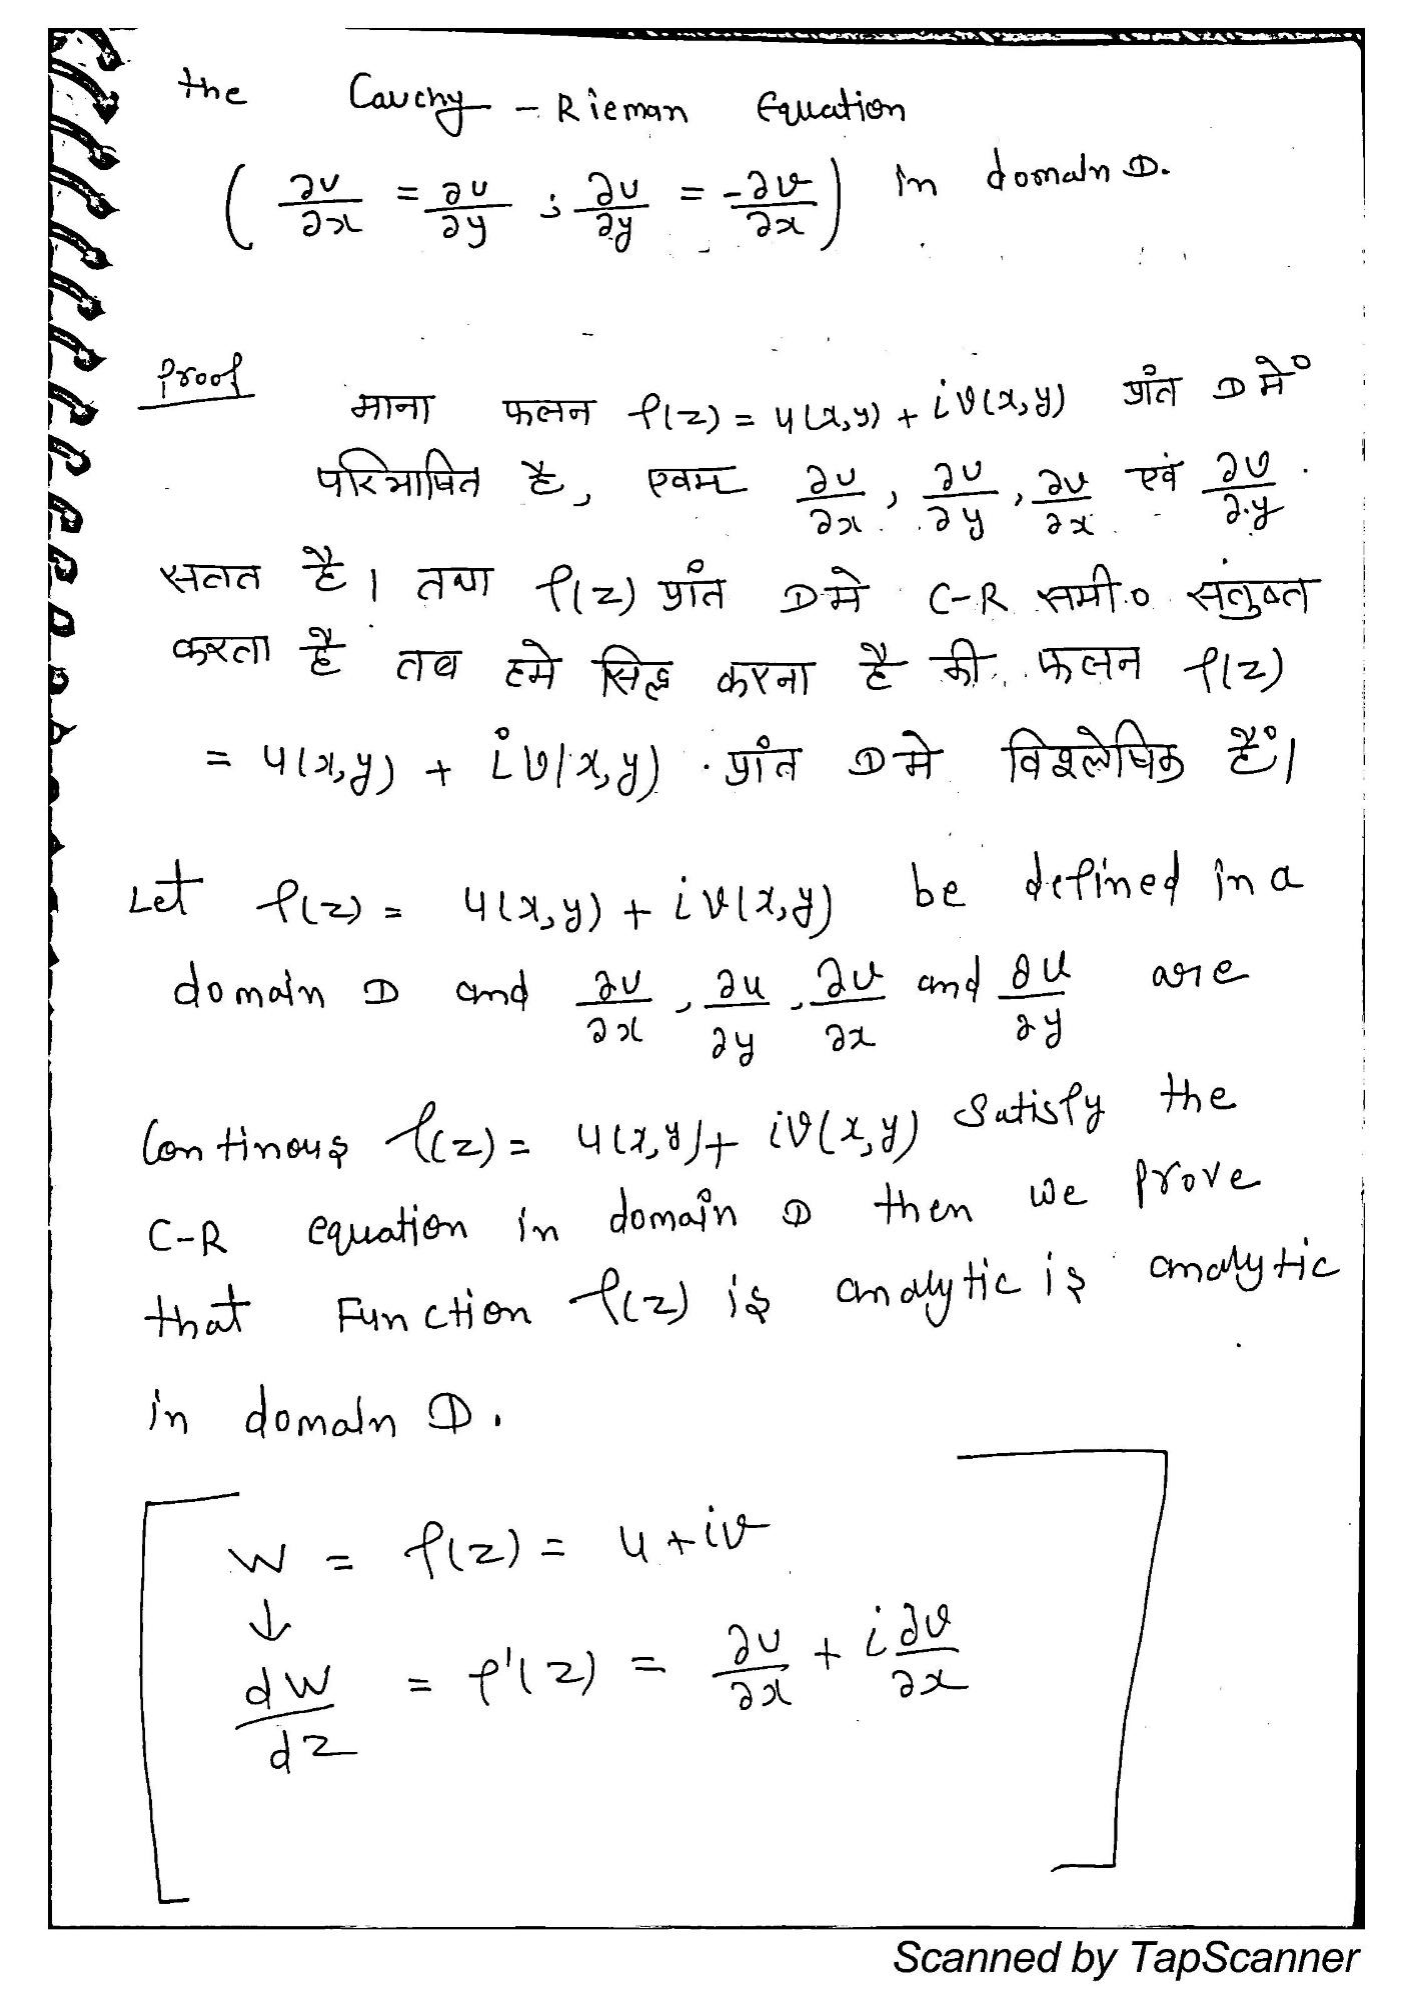 the Cauchy - Rieman Equation
( ∂u/∂x = ∂u/∂y ; ∂u/∂y = -∂v/∂x ) in domain D.
Proof माना फलन f(z) = u(x,y) + iv(x,y) प्रांत D में
परिभाषित है, एवम ∂u/∂x, ∂u/∂y, ∂v/∂x एवं ∂v/∂y
सतत है। तथा f(z) प्रांत D मे C-R समी० संतुष्त
करता है तब हमे सिद्ध करना है की फलन f(z)
= u(x,y) + iv(x,y) प्रांत D मे विश्लेषिक हैं।
Let f(z) = u(x,y) + iv(x,y) be defined in a
domain D and ∂u/∂x, ∂u/∂y, ∂v/∂x and ∂u/∂y are
Continous f(z) = u(x,y) + iv(x,y) Satisfy the
C-R equation in domain D then we prove
that Function f(z) is analytic is analytic
in domain D.
W = f(z) = u + iv
↓
dW/dz = f'(z) = ∂u/∂x + i ∂v/∂x
Scanned by TapScanner